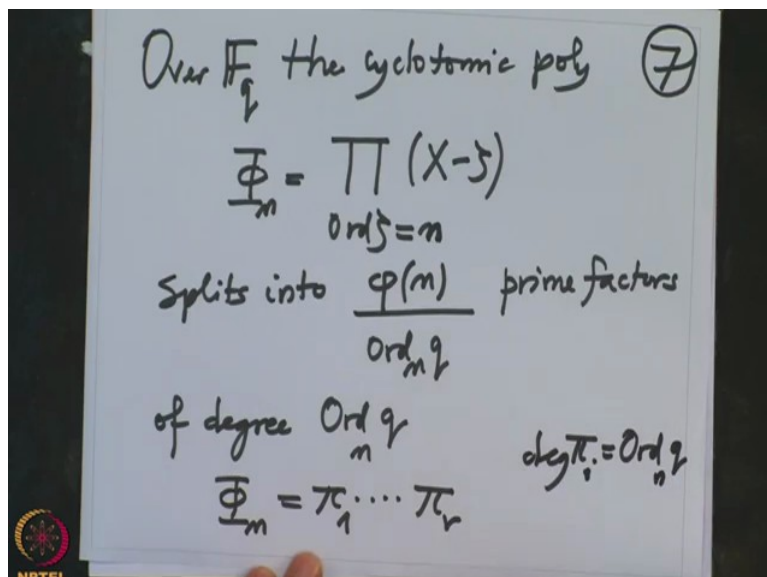 Over 𝔽_q the cyclotomic poly ⑦
Φ_n = ∏ (X-ζ)
Ord ζ = n
Splits into φ(n) / Ord_n q prime factors
of degree Ord_n q
deg π_i = Ord_n q
Φ_n = π_1 ···· π_r
NPTEL